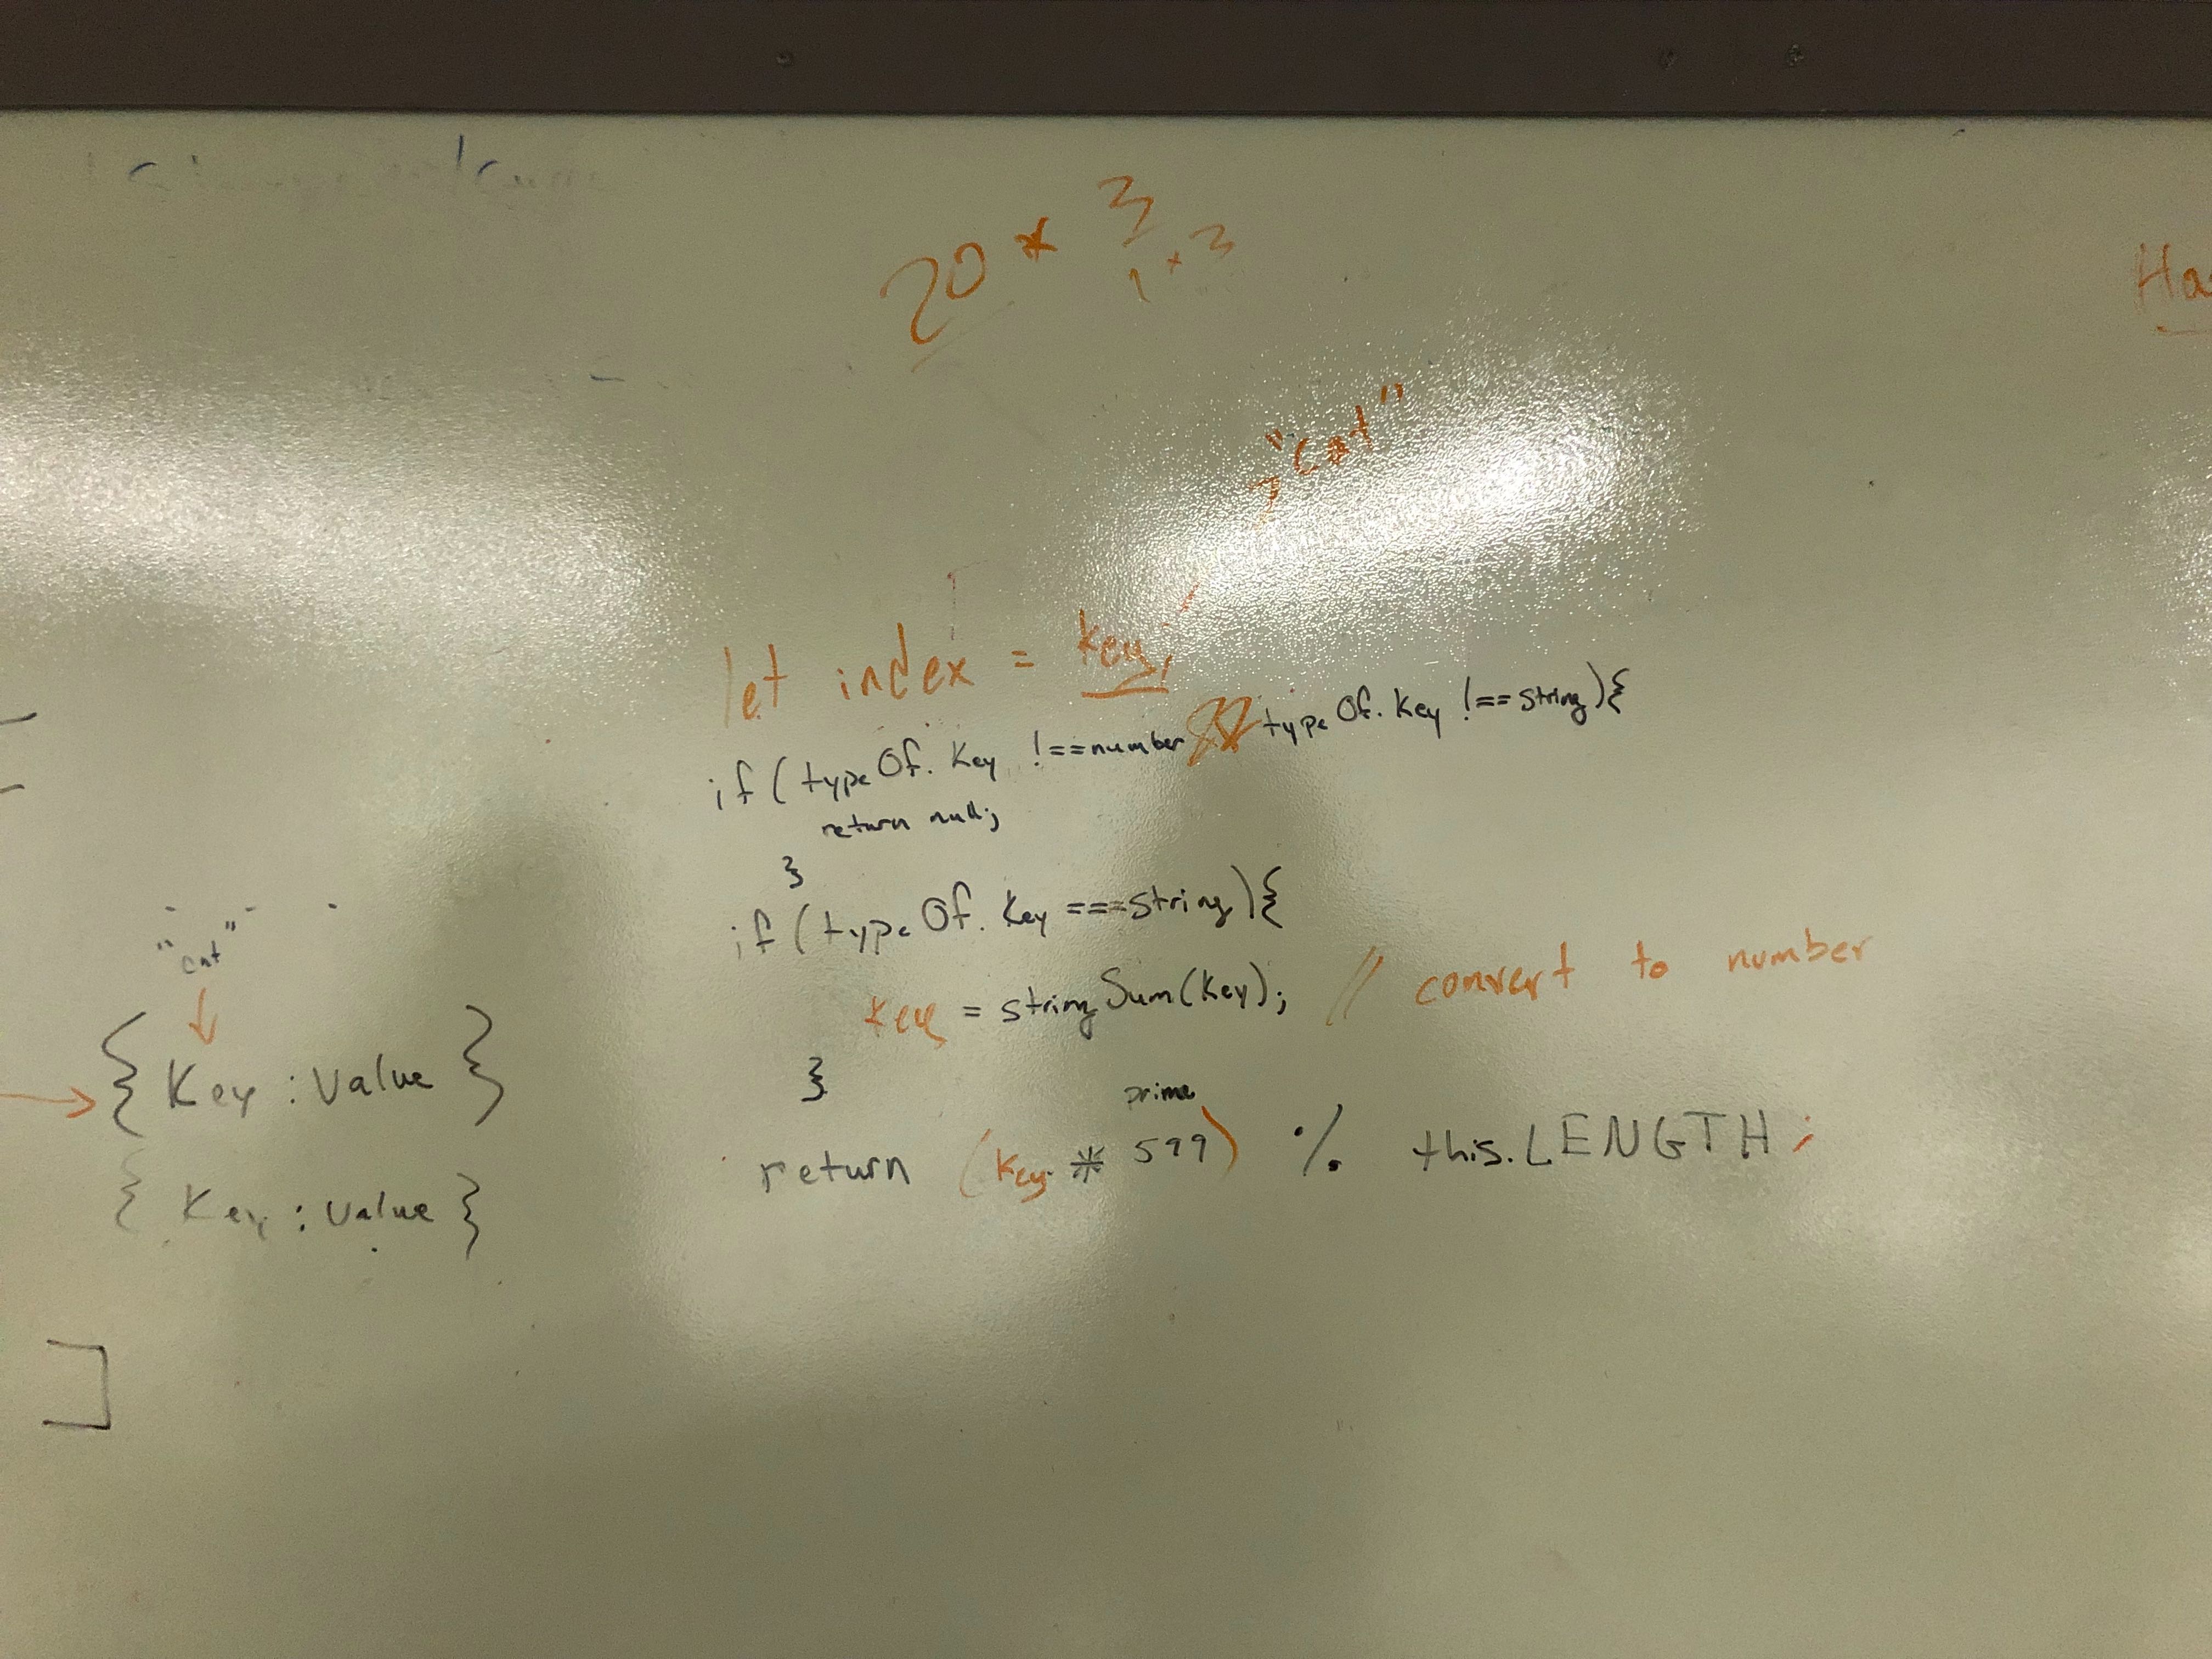 20 * 3
1 * 3
"cat"
let index = key;
if ( typeOf. Key !==number && typeOf. Key !== string){
return null;
}
if (typeOf. Key ===string){
key = stringSum(Key); // convert to number
}
prime
return (Key * 599) % this.LENGTH;
"cat"
{ Key : Value }
{ Key : Value }
]